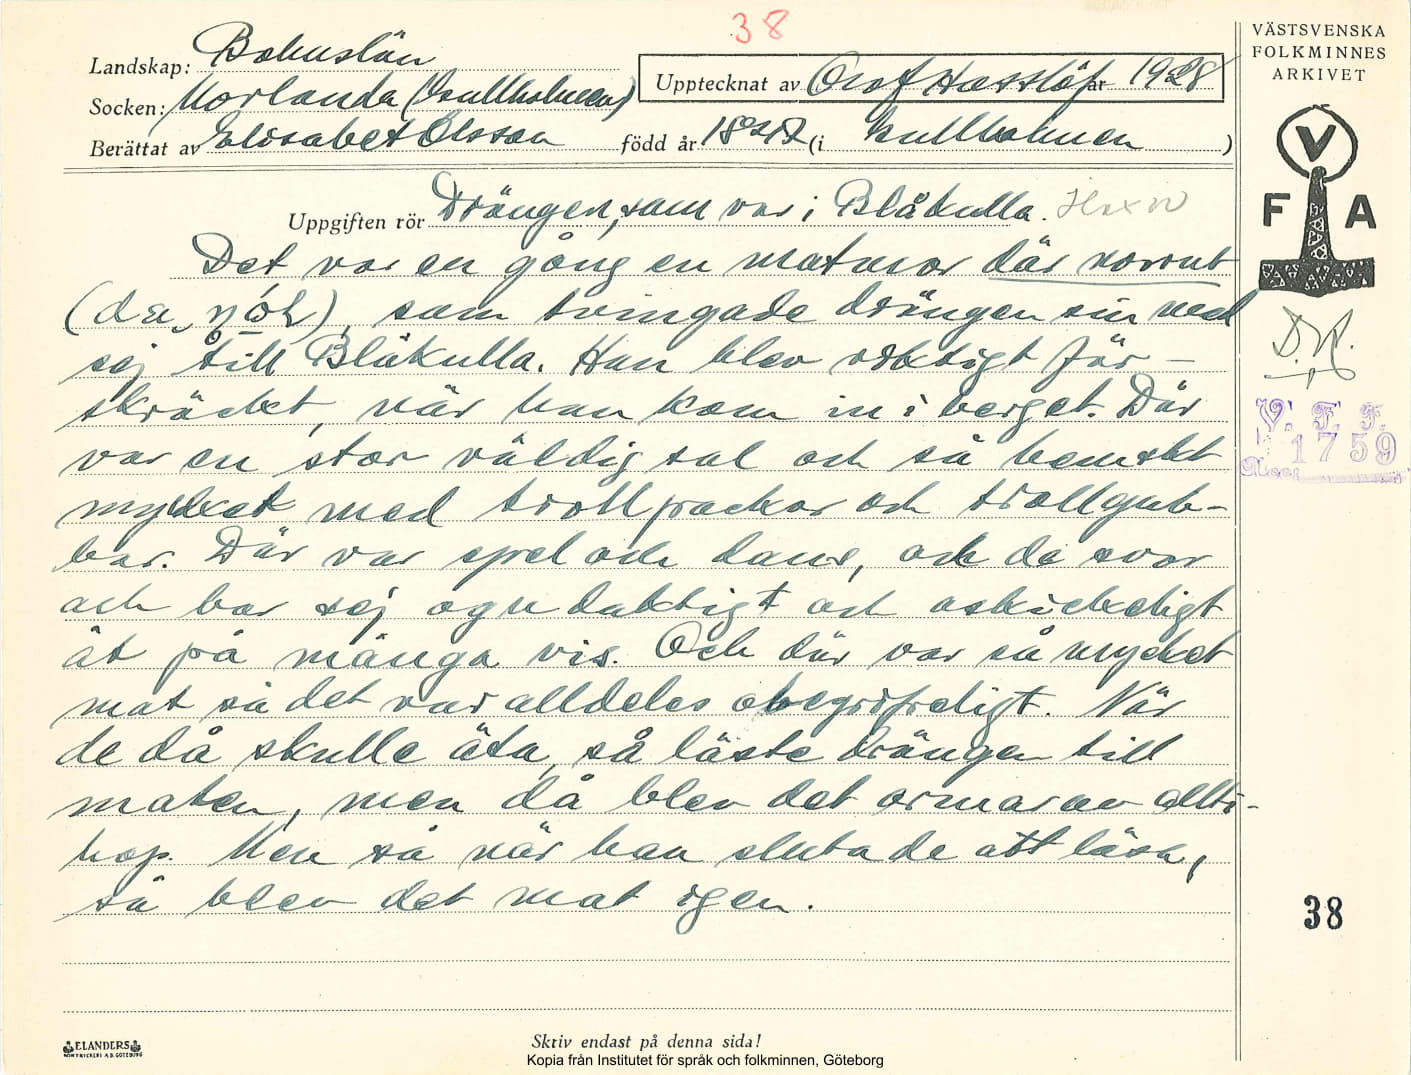 38
VÄSTSVENSKA
FOLKMINNES
ARKIVET
Landskap: Bohuslän
Upptecknat av Olof Hasslöf år 1928
Socken: Morlanda (Gullholmen)
Berättat av Elisabet Olsson född år (i Gullholmen)
V
F A
Uppgiften rör Drängen, som var i Blåkulla. Häxor
Det var en gång en matmor där norrut
som tvingade drängen sin med
sej till Blåkulla. Han blev riktigt för-
skräckt, när han kom in i berget. Där
var en stor väldig sal och så hemskt
mycket med trollpackor och trollgub-
bar. Där var spel och dans, och de svor
och bar sej ogudaktigt och oskickeligt
åt på många vis. Och där var så mycket
mat så det var alldeles obegripeligt. När
de då skulle äta, så läste drängen till
maten, men då blev det ormar av allti-
hop. Men så när han slutade att läsa,
så blev det mat igen.
V. F. F.
1759
Acc:
38
ELANDERS
BOKTRYCKERI A.B. GÖTEBORG
Skriv endast på denna sida!
Kopia från Institutet för språk och folkminnen, Göteborg